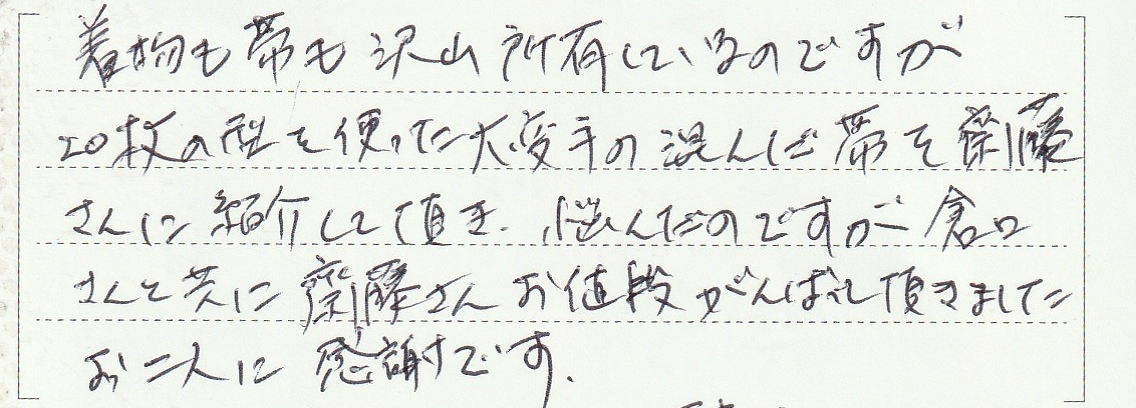 着物も帯も沢山所有しているのですが
20枚の型を使った大変手の混んだ帯を齋藤
さんに紹介して頂き、悩んだのですが倉口
さんと共に齋藤さんお値段がんばって頂きました
お二人に感謝です.